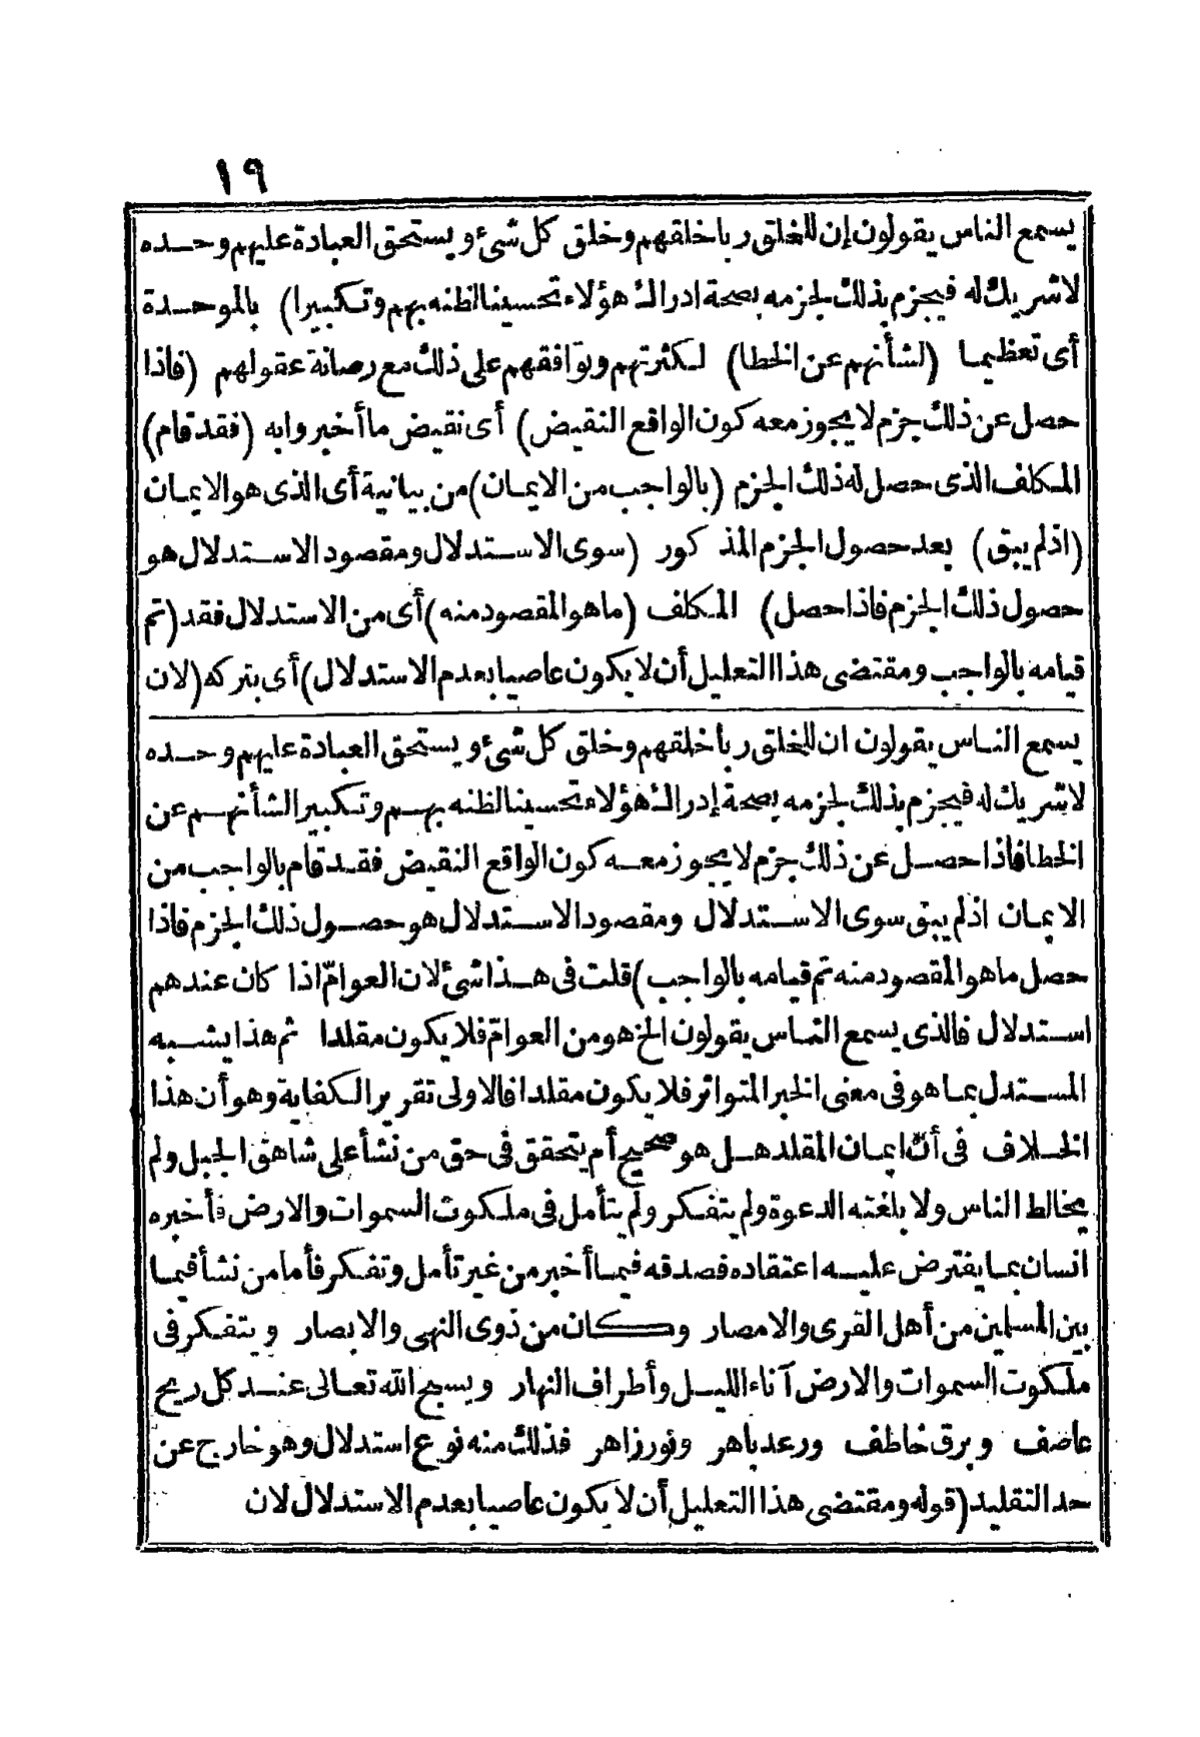 ١٩
يسمع الناس يقولون إن للخلق ربا خلقهم وخلق كل شئ ويستحق العبادة عليهم وحده
لا شريك له فيجزم بذلك لجزمه بصحة ادراك هؤلاء تحسينا لظنه بهم وتكبيرا) بالموحدة
أى تعظيما (لشأنهم عن الخطا) لكثرتهم وتوافقهم على ذلك مع رصانة عقولهم (فاذا
حصل عن ذلك جزم لا يجوز معه كون الواقع النقيض) أى نقيض ما أخبروا به (فقد قام)
المكلف الذى حصل له ذلك الجزم (بالواجب من الايمان) من بيانية أى الذى هو الايمان
(اذ لم يبق) بعد حصول الجزم المذكور (سوى الاستدلال ومقصود الاستدلال هو
حصول ذلك الجزم فاذا حصل) المكلف (ما هو المقصود منه) أى من الاستدلال فقد (تم
قيامه بالواجب ومقتضى هذا التعليل أن لا يكون عاصيا بعدم الاستدلال) أى بتركه (لان
يسمع الناس يقولون ان للخلق ربا خلقهم وخلق كل شئ ويستحق العبادة عليهم وحده
لا شريك له فيجزم بذلك لجزمه بصحة إدراك هؤلاء تحسينا لظنه بهم وتكبيرا لشأنهم عن
الخطا فاذا حصل عن ذلك جزم لا يجوز معه كون الواقع النقيض فقد قام بالواجب من
الايمان اذ لم يبق سوى الاستدلال ومقصود الاستدلال هو حصول ذلك الجزم فاذا
حصل ما هو المقصود منه تم قيامه بالواجب) قلت فى هذا شئ لان العوامّ اذا كان عندهم
استدلال فالذى يسمع الناس يقولون الخ هو من العوامّ فلا يكون مقلدا ثم هذا يشبه
المستدل بما هو فى معنى الخبر المتواتر فلا يكون مقلدا فالاولى تقرير الكفاية وهو أن هذا
الخلاف فى أنّ ايمان المقلد هل هو صحيح أم يتحقق فى حق من نشأ على شاهق الجبل ولم
يخالط الناس ولا بلغته الدعوة ولم يتفكر ولم يتأمل فى ملكوت السموات والارض فأخبره
انسان بما يفترض عليه اعتقاده فصدقه فيما أخبر من غير تأمل وتفكر فأما من نشأ فيما
بين المسلمين من أهل القرى والامصار وكان من ذوى النهى والابصار ويتفكر فى
ملكوت السموات والارض آناء الليل وأطراف النهار ويسبح الله تعالى عند كل ريح
عاصف وبرق خاطف ورعد باهر ونور زاهر فذلك منه نوع استدلال وهو خارج عن
حد التقليد (قوله ومقتضى هذا التعليل أن لا يكون عاصيا بعدم الاستدلال لان